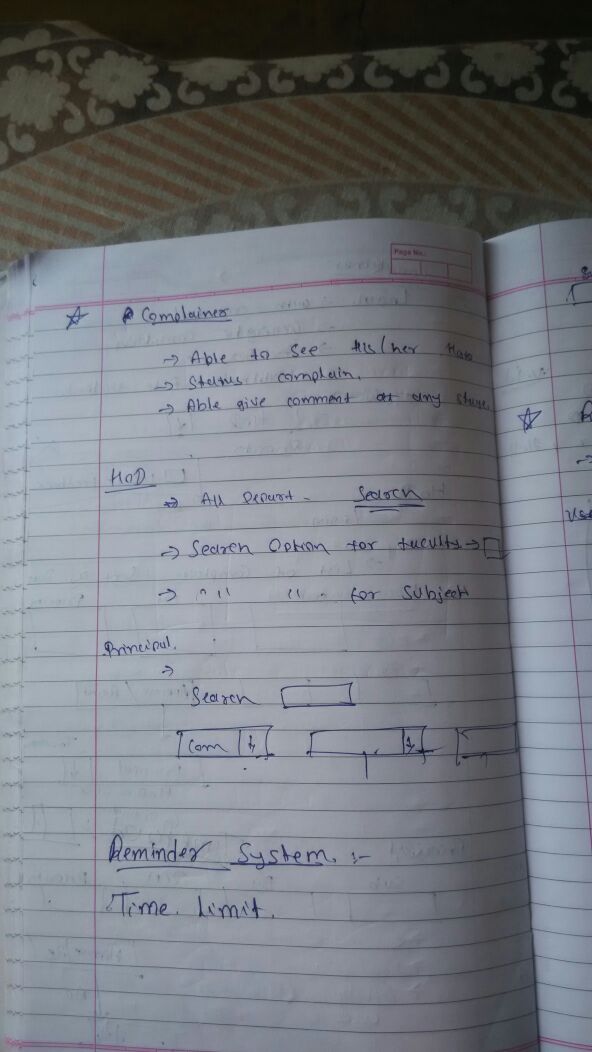 Page No.:
Complainer
→ Able to see his/her
→ Status complain.
→ Able give comment at any stage
HOD
→ All Depart - Search
→ Search Option for faculty →
→ " " " " for Subject
Principal.
→
Search
Com
Reminder System :-
Time. Limit.
Use